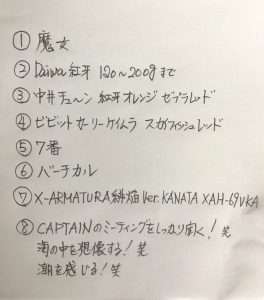 ① 魔女
② Daiwa紅牙 120~200gまで
③ 中井チューン 紅牙オレンジ ゼブラレッド
④ ビビットカーリーケイムラ スカイフィッシュレッド
⑤ 7番
⑥ バーチカル
⑦ X-ARMATURA緋焔 Ver. KANATA XAH-69VKA
⑧ CAPTAINのミーティングをしっかり聞く! 笑
海の中を想像する! 笑
潮を感じる! 笑